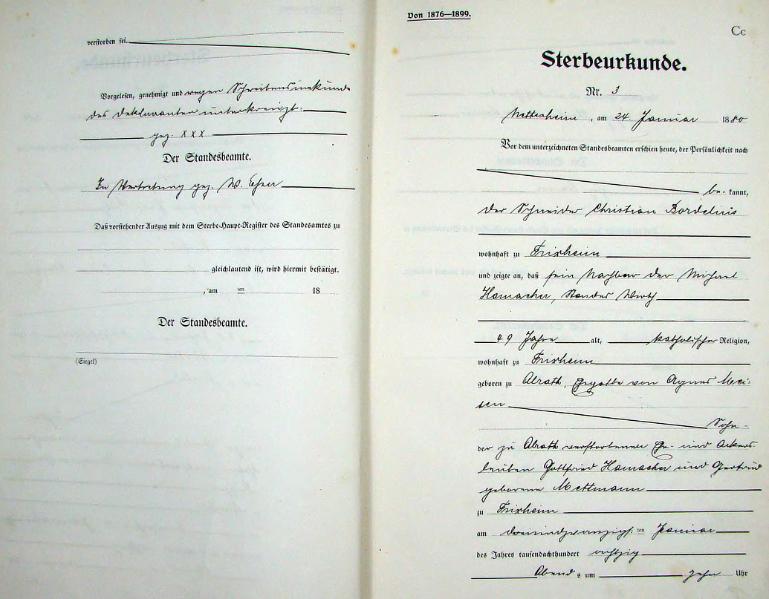 verstorben sei.
Vorgelesen, genehmigt und wegen Schreibensunkunde
des Deklaranten unterkreuzt.
gez. XXX
Der Standesbeamte.
In Vertretung gez. W. Esser
Daß vorstehender Auszug mit dem Sterbe-Haupt-Register des Standesamtes zu
gleichlautend ist, wird hiermit bestätigt.
, am ten 18
Der Standesbeamte.
(Siegel)
Von 1876—1899.
Cc
Sterbeurkunde.
Nr. 3
Nettesheim, am 24 Januar 1880
Vor dem unterzeichneten Standesbeamten erschien heute, der Persönlichkeit nach
be- kannt,
der Schneider Christian
wohnhaft zu Frixheim
und zeigte an, daß sein Nachbar der Michael
Hamacher, Standes Wirth
49 Jahre alt, katholischer Religion,
wohnhaft zu Frixheim
geboren zu Alrath, Ehegatte von Agnes Meri-
sen
Sohn
der zu Alrath verstorbenen Ehe- und Ackers-
leuten Gottfried Hamacher und Gertrud
geborene Mettmann
zu Frixheim
am dreiundzwanzigsten Januar
des Jahres tausendachthundert achtzig
Abends um zehn Uhr